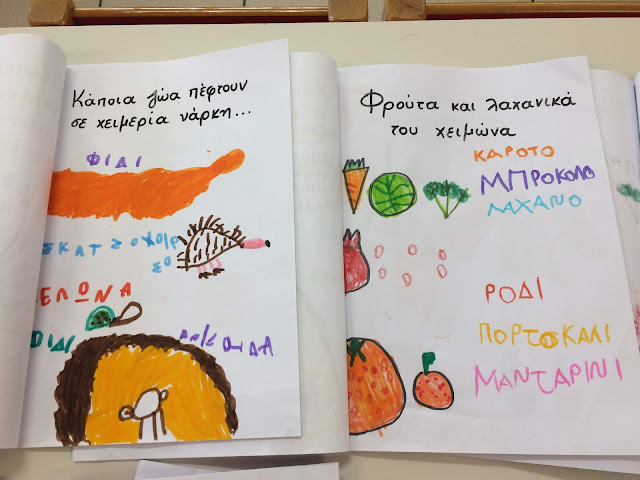 Κάποια ζώα πέφτουν
σε χειμερία νάρκη...
ΦΙΔΙ
ΣΚΑΤΖΟΧΟΙΡ
ΣΟ
ΕΛΩΝΑ
ΟΙΔΙ
ΑΡΚΟΥΔΑ
Φρούτα και λαχανικά
του χειμώνα
ΚΑΡΟΤΟ
ΜΠΡΟΚΟΛΟ
ΛΑΧΑΝΟ
ΡΟΔΙ
ΠΟΡΤΟΚΑΛΙ
ΜΑΝΤΑΡΙΝΙ